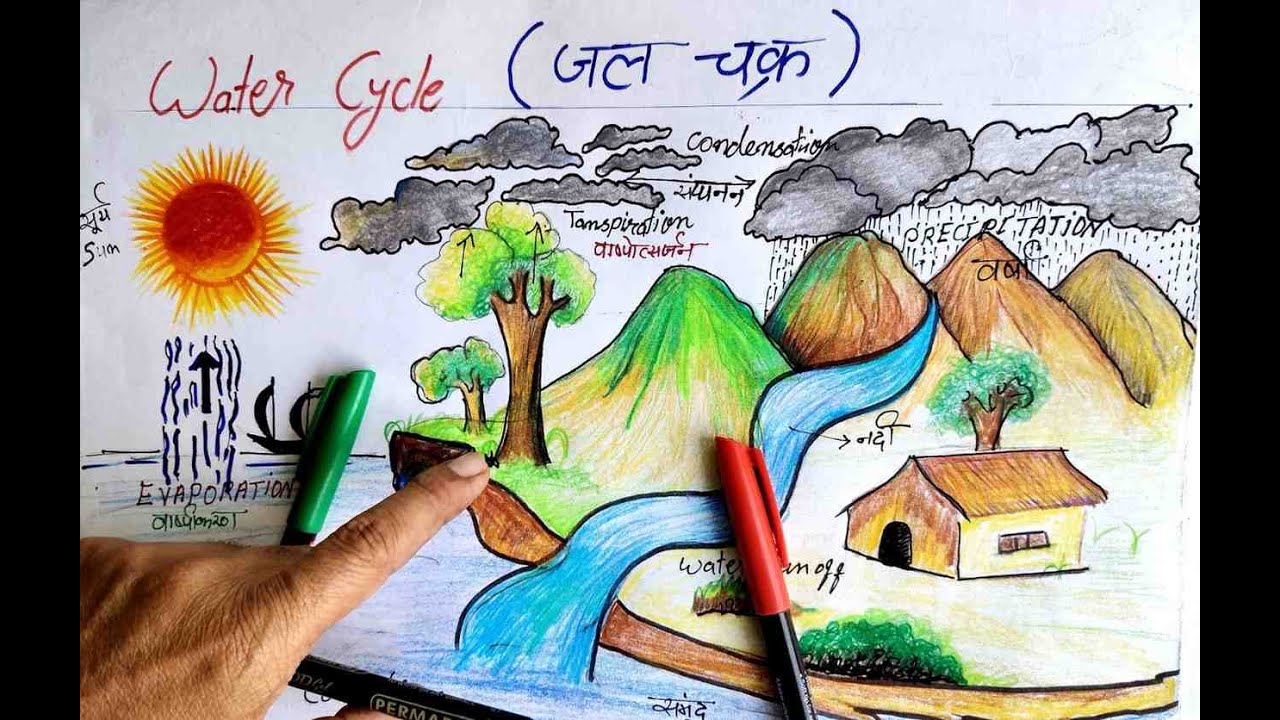 Water Cycle (जल चक्र)
Condensation
संघनन
सूर्य
Sun
Tanspiration
वाष्पोत्सर्जन
PRECIPITATION
वर्षा
नदी
EVAPORATION
Water
off
समंद
PERMA